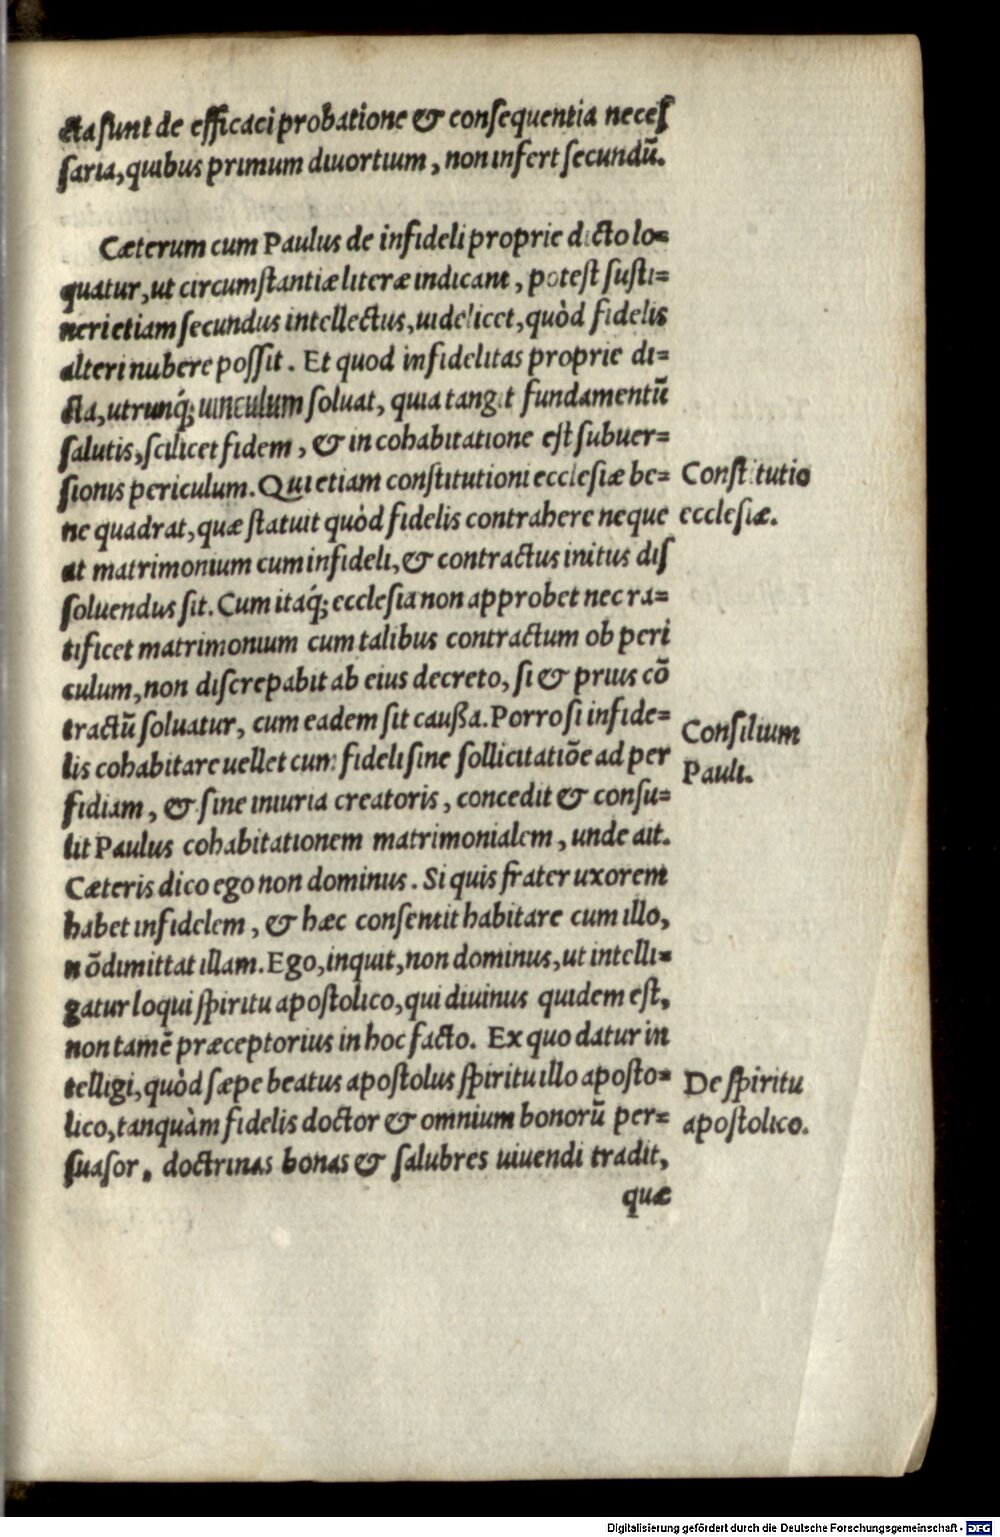 cta sunt de efficaci probatione & consequentia neces
saria, quibus primum diuortium, non infert secundū.
Cæterum cum Paulus de infideli proprie dicto lo=
quatur, ut circumstantiæ literæ indicant, potest susti=
neri etiam secundus intellectus, uidelicet, quòd fidelis
alteri nubere possit. Et quod infidelitas proprie di=
cta, utrunq́; uinculum soluat, quia tangit fundamentū
salutis, scilicet fidem, & in cohabitatione est subuer=
sionis periculum. Qui etiam constitutioni ecclesiæ be=
ne quadrat, quæ statuit quòd fidelis contrahere neque
at matrimonium cum infideli, & contractus initus dis
soluendus sit. Cum itaq́; ecclesia non approbet nec ra=
tificet matrimonium cum talibus contractum ob peri
culum, non discrepabit ab eius decreto, si & prius cō
tractū soluatur, cum eadem sit caußa. Porro si infide=
lis cohabitare uellet cum fideli sine sollicitatiōe ad per
fidiam, & sine iniuria creatoris, concedit & consu=
lit Paulus cohabitationem matrimonialem, unde ait.
Cæteris dico ego non dominus. Si quis frater uxorem
habet infidelem, & hæc consentit habitare cum illo,
nō dimittat illam. Ego, inquit, non dominus, ut intelli=
gatur loqui spiritu apostolico, qui diuinus quidem est,
non tamē præceptorius in hoc facto. Ex quo datur in
telligi, quòd sæpe beatus apostolus spiritu illo aposto=
lico, tanquàm fidelis doctor & omnium bonorū per=
suasor, doctrinas bonas & salubres uiuendi tradit,
quæ
Constitutio
ecclesiæ.
Consilium
Pauli.
De spiritu
apostolico.
Digitalisierung gefördert durch die Deutsche Forschungsgemeinschaft - DFG